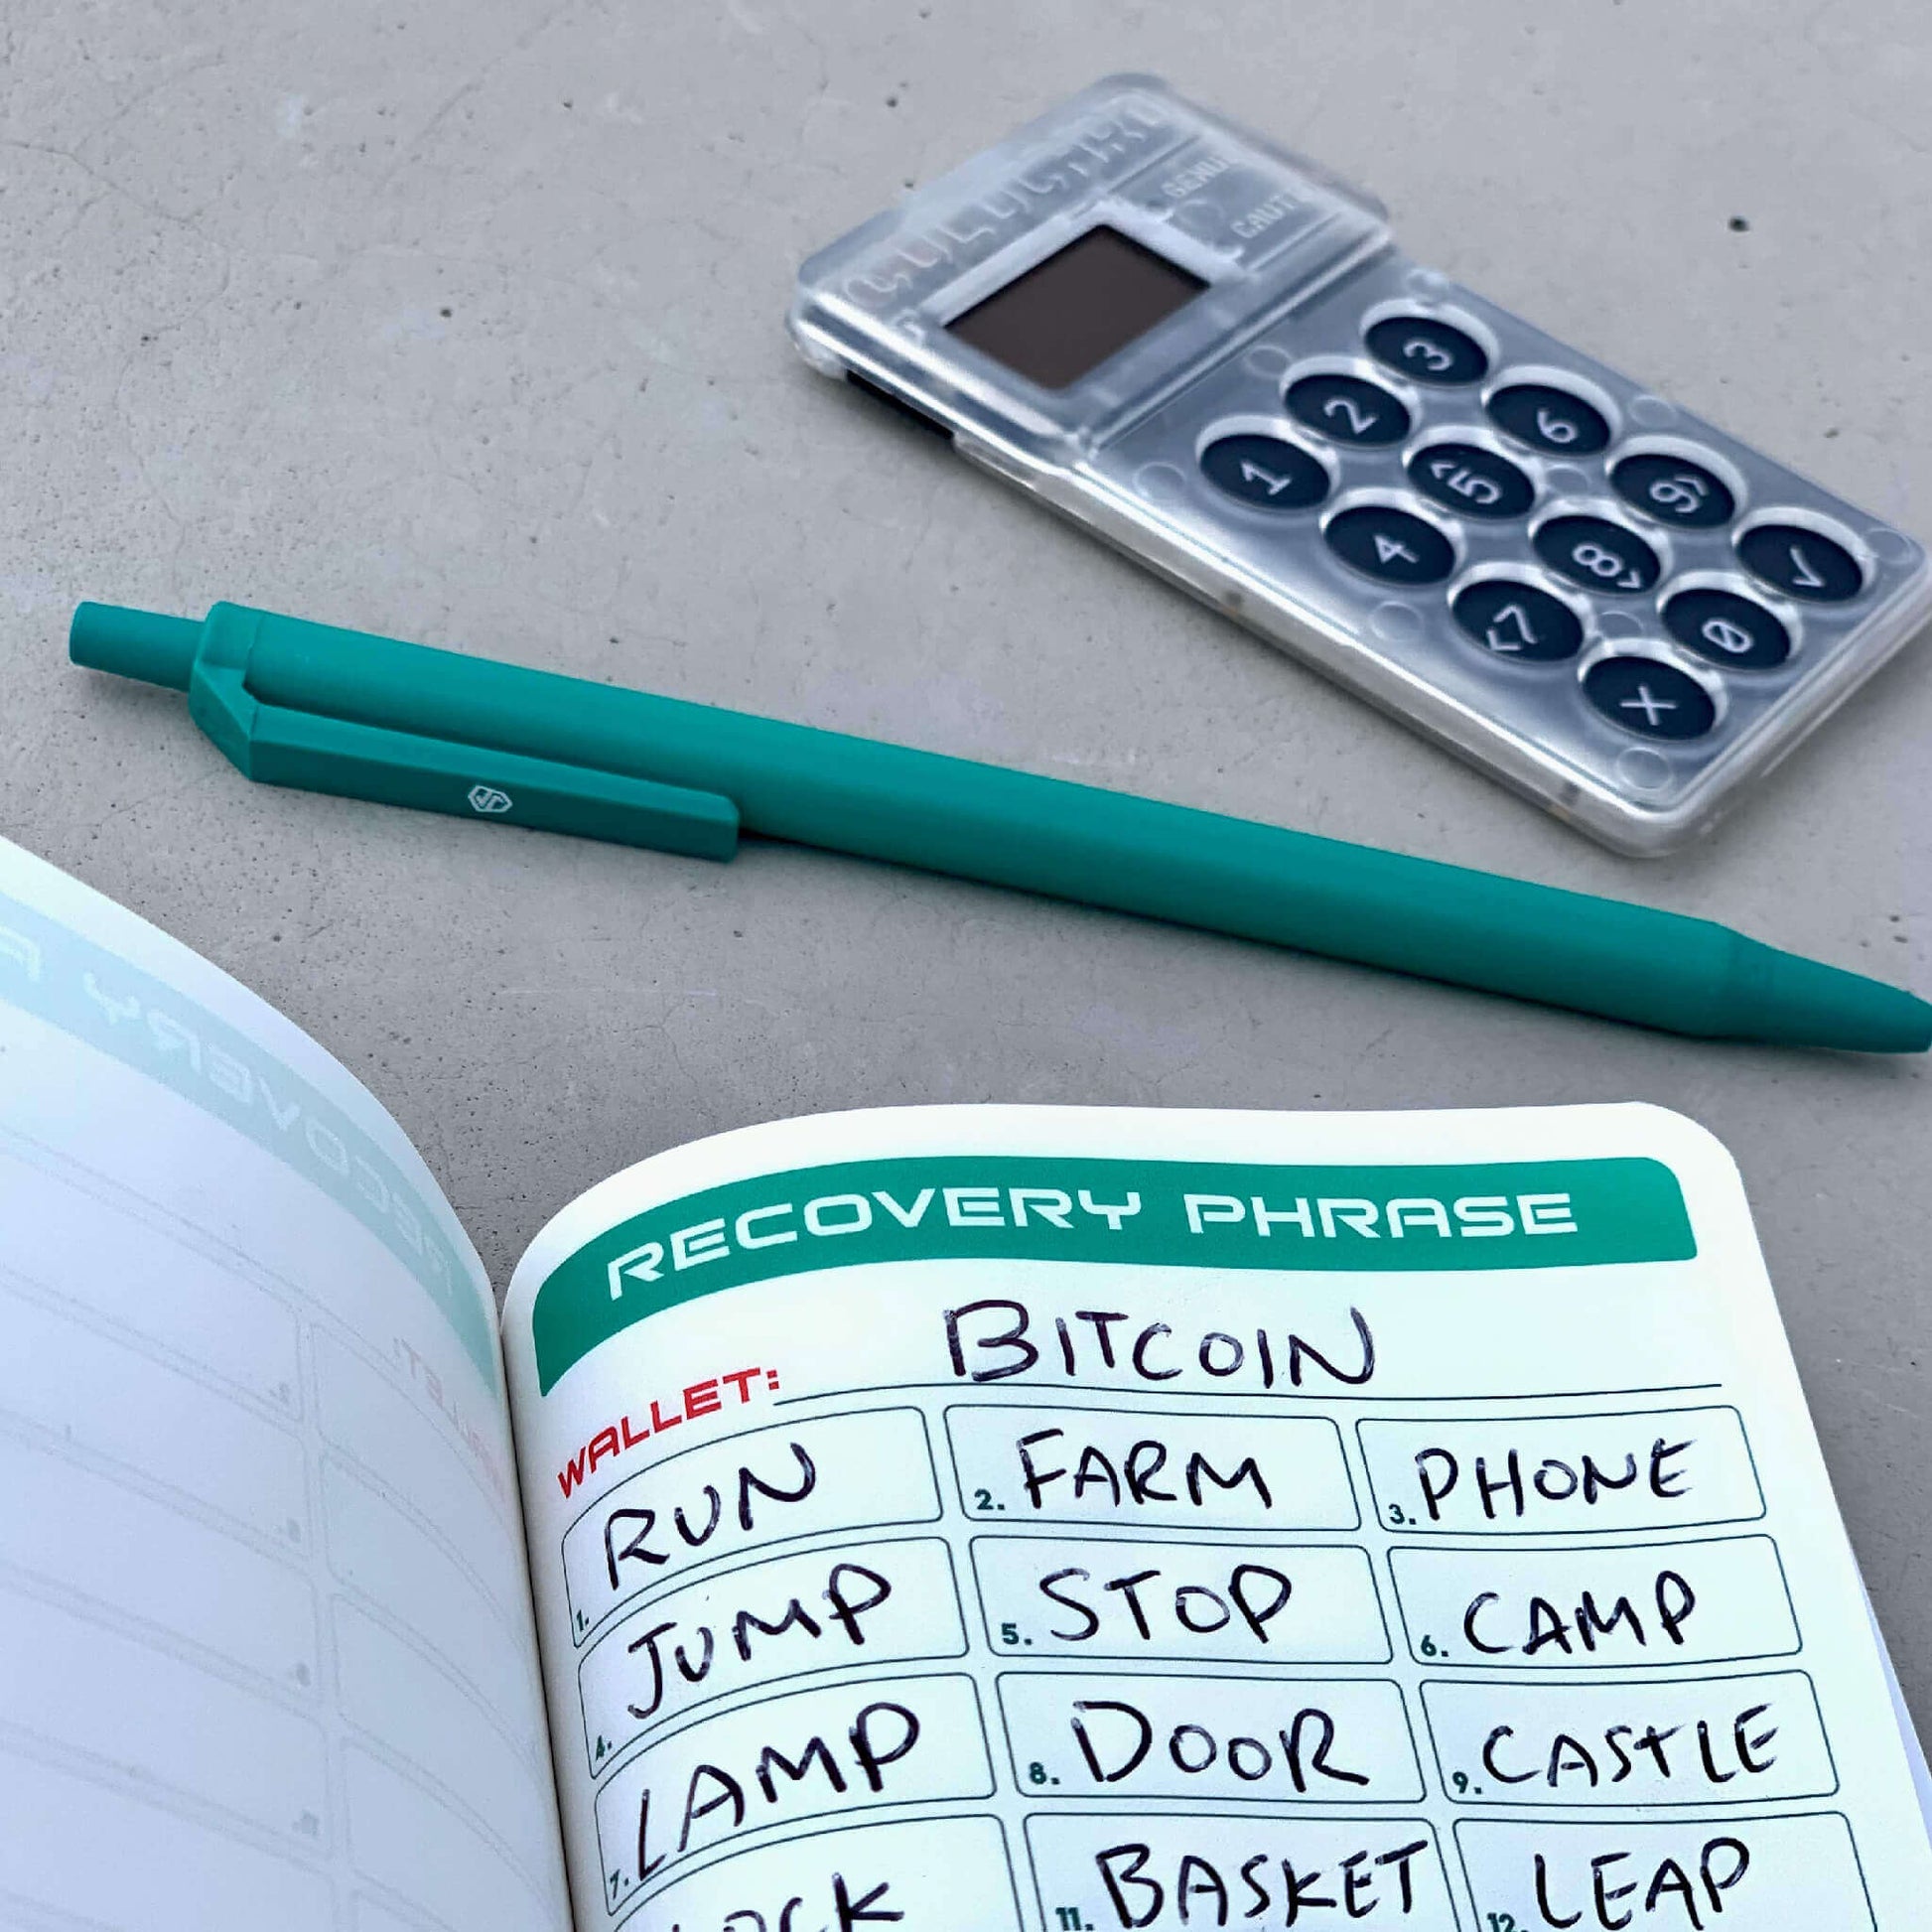 1 2 3
4 5 6
7 8 9
X 0 ✓
RECOVERY PHRASE
WALLET: BITCOIN
1. RUN 2. FARM 3. PHONE
4. JUMP 5. STOP 6. CAMP
7. LAMP 8. DOOR 9. CASTLE
11. BASKET 12. LEAP